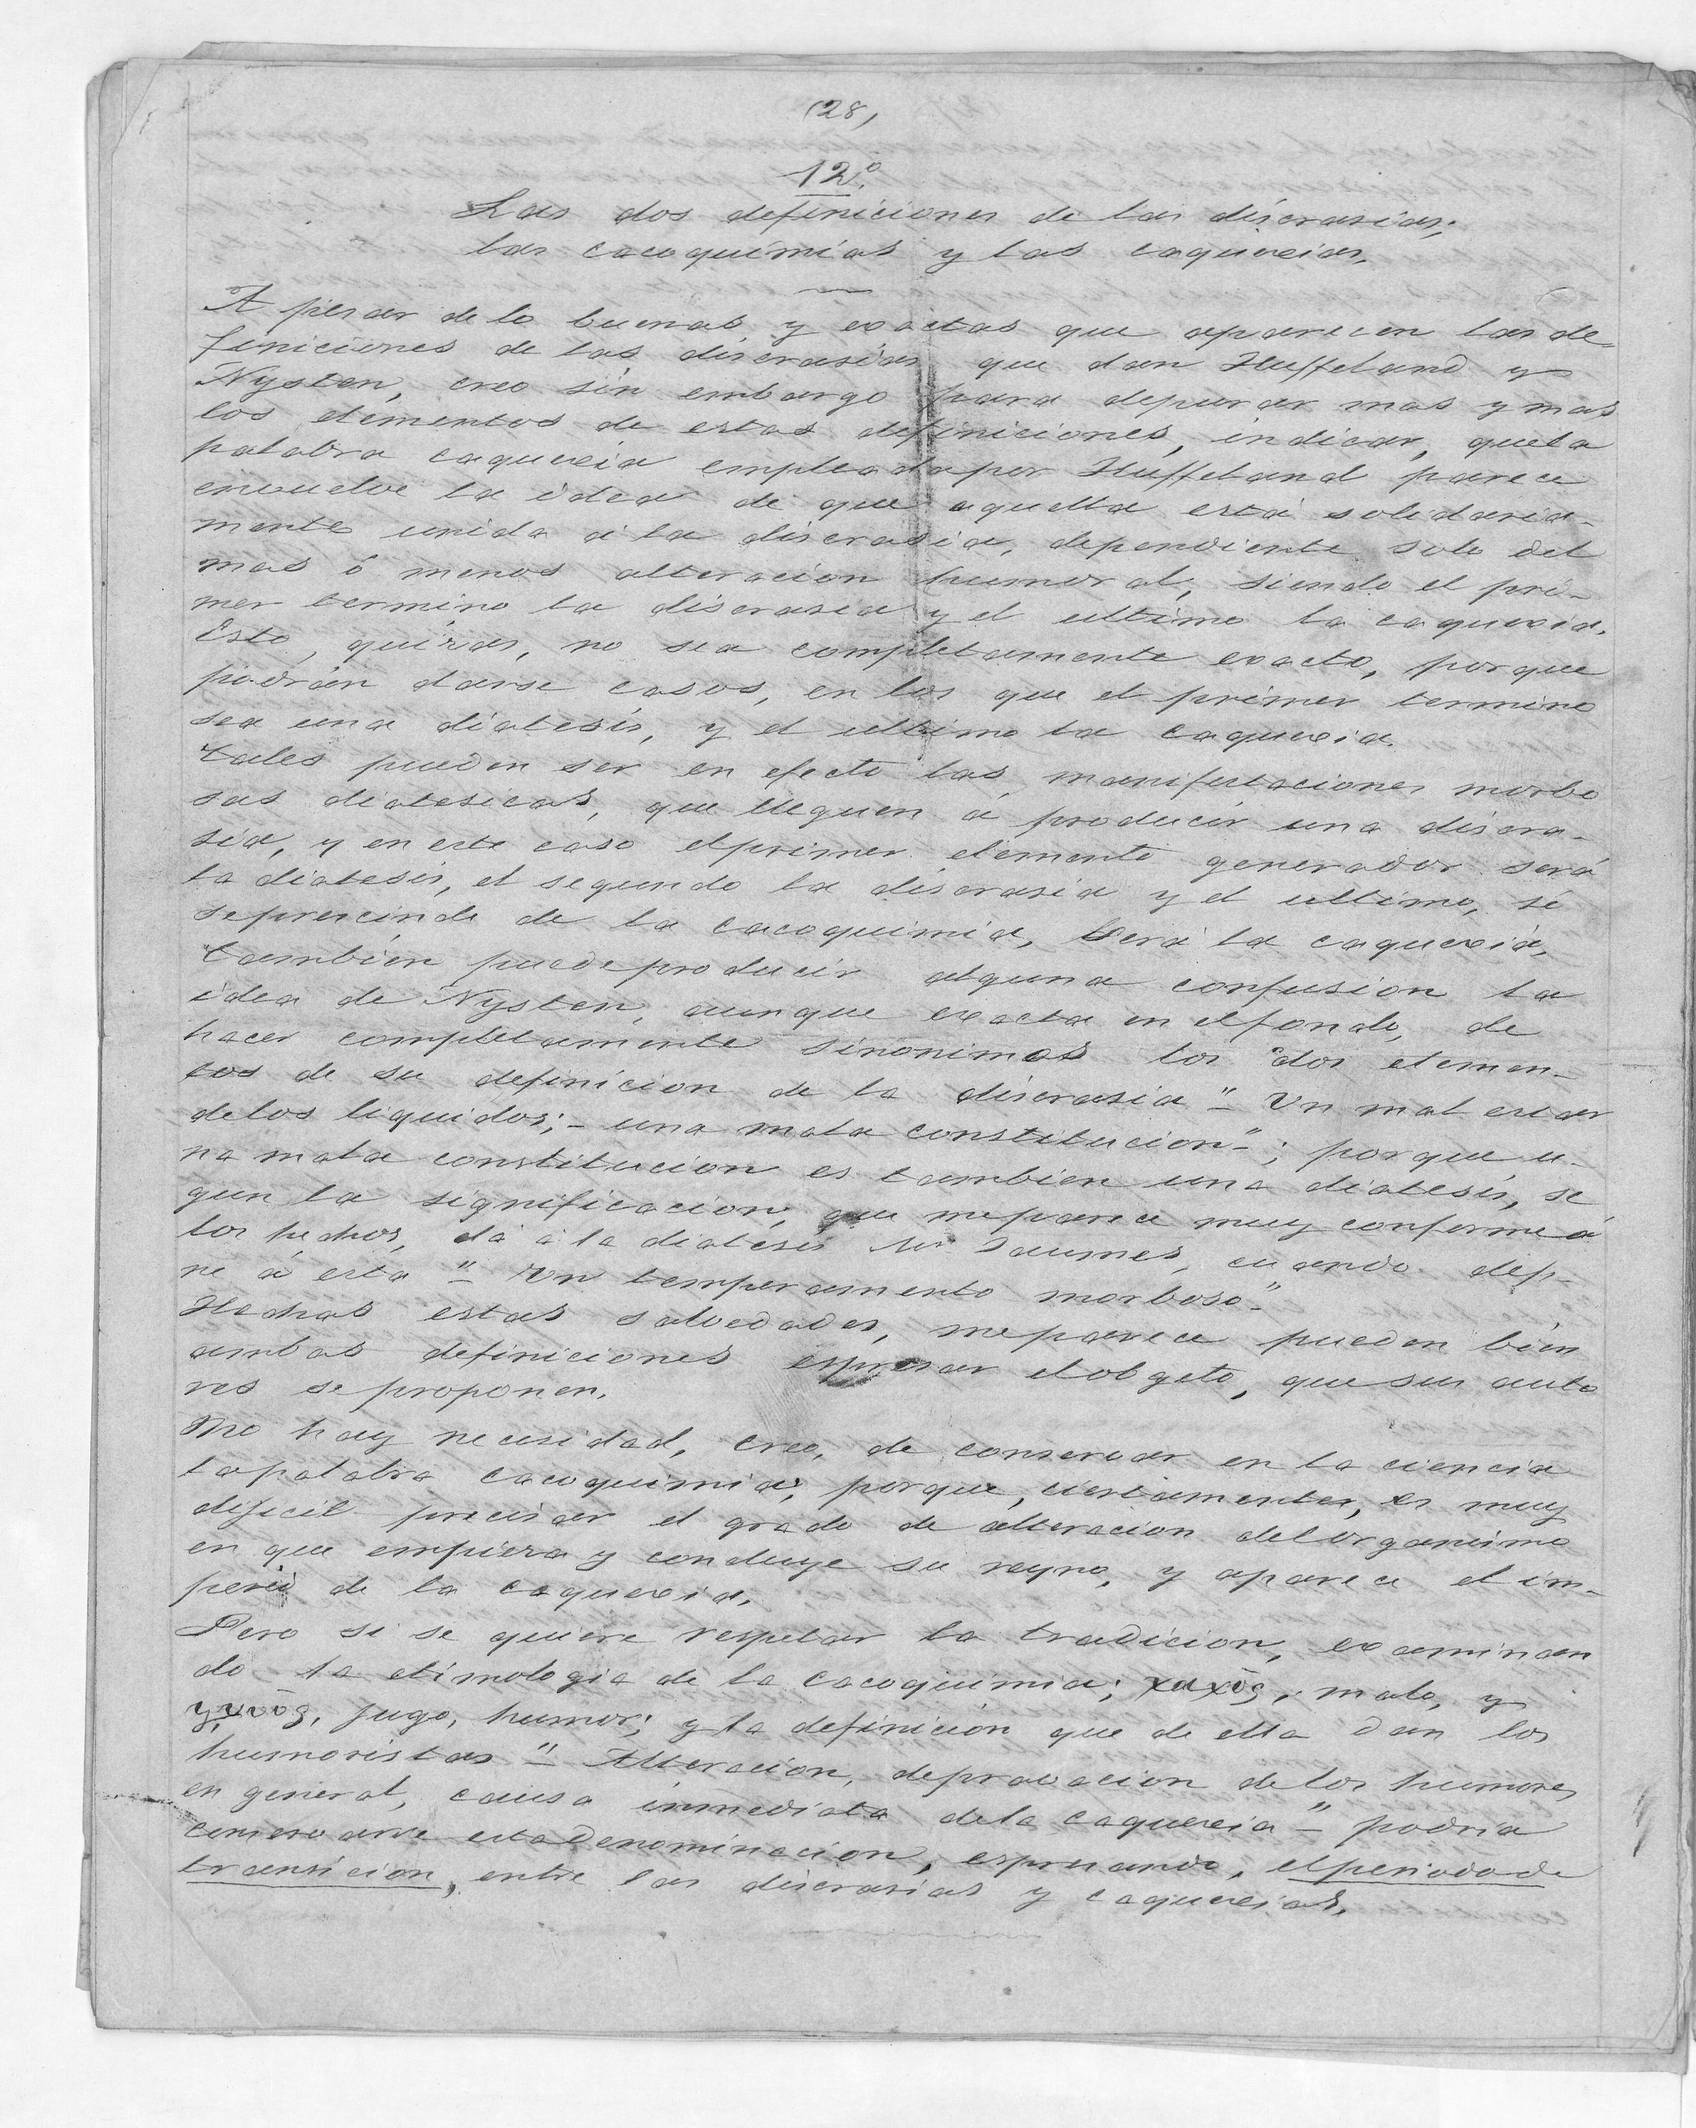 (28)
12º.
Las dos definiciones de las discrasias;
las cacoquimias y las caquexias.
A pesar de lo buenas y exactas que aparecen las de-
finiciones de las discrasias que dan Huffeland y
Nysten, creo sin embargo para depurar mas y mas
los elementos de estas definiciones, indicar, que la
palabra caquexia empleada por Huffeland parece
envuelve la idea de que aquella está solidaria-
mente unida á la discrasia, dependiente solo del
mas ó menos alteracion humoral, siendo el pri-
mer termino la discrasia y el ultimo la caquexia.
Esto, quizas, no sea completamente exacto, porque
podrán darse casos, en los que el primer termino
sea una diatesis, y el ultimo la caquexia.
Tales pueden ser en efecto las manifestaciones morbo
sas diatesicas, que lleguen á producir una discra-
sia, y en este caso el primer elemento generador será
la diatesis, el segundo la discrasia y el ultimo, si
se prescinde de la cacoquimia, será la caquexia.
Tambien puede producir alguna confusion la
idea de Nysten, aunque exacta en el fondo, de
hacer completamente sinonimos los dos elemen-
tos de su definicion de la discrasia "- Un mal estar
de los liquidos; - una mala constitucion -"; porque u-
na mala constitucion es tambien una diatesis, se
gun la significacion, que me parece muy conforme á
los hechos, dá á la diatesis Mr Jaumes, cuando defi-
ne á esta "- Un temperamento morboso -"
Hechas estas salvedades, me parece pueden bien
ambas definiciones espresar el obgeto, que sus auto
res se proponen.
No hay necesidad, creo, de conservar en la ciencia
la palabra cacoquimia, porque, ciertamente, es muy
dificil precisar el grado de alteracion del organismo
en que empieza y concluye su reyno, y aparece el im-
perio de la caquexia.
Pero si se quiere respetar la tradicion, examinan
do la etimologia de la cacoquimia; χαχός, malo, y
jugo, humor; y la definición que de ella dan los
humoristas "- Alteracion, depravacion de los humores
en general, causa inmediata de la caquexia -" podria
conservarse esta denominacion, espresando, el periodo de
transicion, entre las discrasias y caquexias.